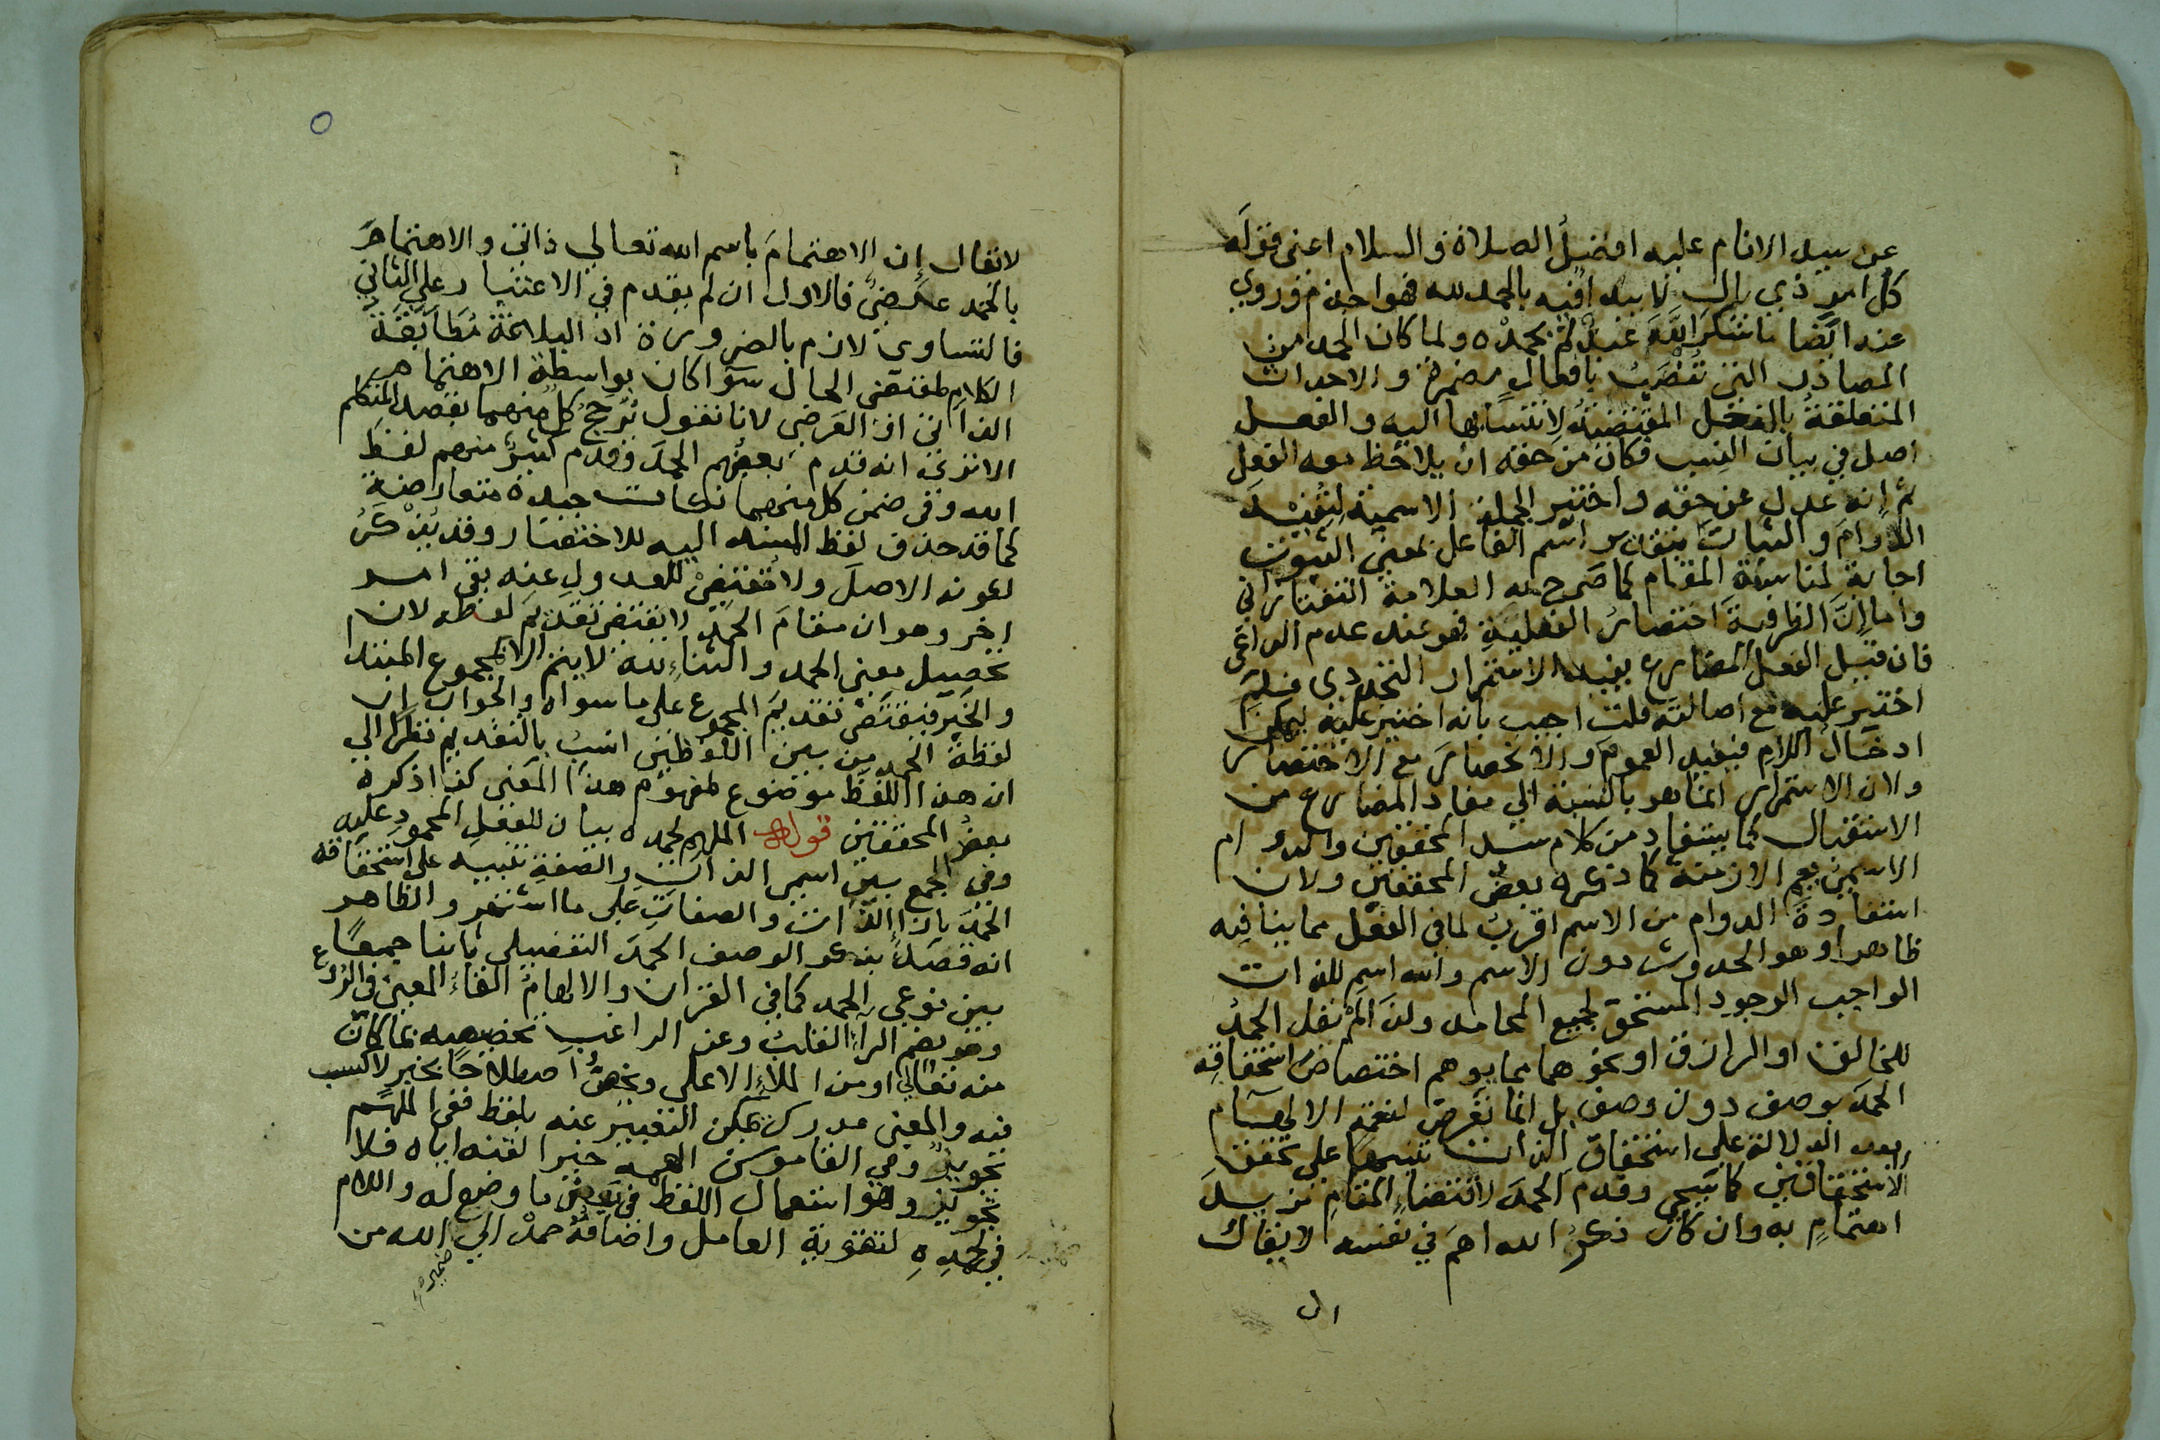 عن سيد الانام عليه افضلُ الصلاة والسلام اعنى قولَه
كل امرٍ ذي بالٍ لا يبدأ فيه بالحمد لله فهو اجذم وروي
عنه ايضا ما شكرَ اللهَ عبدٌ لم يحمدْه ولما كان الحمد من
المصادر التى تُنْصَبُ بافعالٍ مضمرة والاحداث
المتعلقةُ بالمحل المقتضيةُ لانتسابها اليه والفعل
اصل في بيان النسب فكان من حقه ان يلاحظ معه الفعل
ثم انه عدل عن حقه واختير الجملة الاسمية لِتُفِيْدَ
الدوامَ والثباتَ بتقدير اسم الفاعل بمعنى الثبوت
اجابة لمناسبة المقام كما صرح به العلامة التفتازاني
واما إنَّ الظرفيةَ اختصارُ الفعليةِ فهو عند عدم الداعى
فان قيل الفعل المضارع يفيد الاستمرار التجددى فلِمَ
اختير عليه مع اصالته قلت اجيب بانه اختير عليه ليمكن
ادخالُ اللام فيفيد العمومَ والانحصارَ مع الاختصار
ولان الاستمرار انما هو بالنسبة الي مفاد المضارع من
الاستقبال كما يستفاد من كلام سند المحققين والدوام
الاسمين يعم الازمنة كما ذكره بعض المحققين ولان
استفادةَ الدوام من الاسم اقربُ لما في الفعل مما ينافيه
ظاهرا وهو الحدوث دون الاسم والله اسم للذات
الواجب الوجود المستحق لجميع المحامد ولذا لم نقل الحمدُ
للخالق او الرازق او نحوهما مما يوهم اختصاصَ استحقاقِه
الحمدَ بوصف دون وصف بل انما تعرض لنعمة الالهام
بعد الدلالة على استحقاق الذات تنبيها على تحقق
الاستحقاقين كما سيجي وقدم الحمدَ لاقتضاءِ المقام مزيدَ
اهتمامٍ به وان كان ذكرُ الله اهمَّ في نفسه لا يقال
ان
لا يقال إن الاهتمامَ باسم الله تعالي ذاتى والاهتمامَ
بالحمد عرضيٌّ فالاول ان لم يقدم في الاعتبار علي الثاني
فالتساوي لازم بالضرورة اذ البلاغة مُطَابَقَةُ
الكلام لمقتضى الحال سوآ كان بواسطة الاهتمام
الذاتي او العَرضى لانا نقول تُرجّح كل منهما بقصد المتكلم
الا ترى انه قدم بعضُهم الحمدَ وقدم كثيرٌ منهم لفظَ
الله وفى ضمن كل منهما نكات جيدة متعارضة
كما قد حذف لفظ المسند اليه للاختصار وقد يُذْكَرُ
لكونه الاصلَ ولا مُقتضِىَ للعدولِ عنه بقى امر
اخر وهو ان مقامَ الحمدِ لا يقتضى تقديمَ لفظه لان
تحصيل معنى الحمد والثناء لله لا يتم الا لمجموع المبتدا
والخبر فيقتضى تقديمَ المجموع على ما سواه والجواب ان
لفظة الحمد من بين اللفظين انسبُ بالتقديم نظرًا الي
ان هذا اللفظَ موضوع لمفهوم هذا المعنى كذا ذكره
بعضُ المحققين قوله الملهم لحمده بيان للفعلِ المحمودِ عليه
وفى الجمع بين اسمى الذات والصفةِ تنبيه على استحقاقه
الحمدَ بازاءِ الذات والصفاتِ على ما اشتهر والظاهر
انه قصدَ بذكر الوصف الحمدَ التفصيلي ثانيا جمعًا
بين نوعي الحمد كما في القران والالهامُ القاءُ المعنى في الرُوع
وهو بضم الرآء القلبُ وعن الراغب تخصيصه بما كان
منه تعالي او من الملاءِ الاعلى ويخصُّ اصطلاحًا بخير لا كسب
فيه والمعنى مدرك يمكن التعبير عنه بلفظ ففى الملهم
تجويدٌ وفي القاموس الهمه خيرا لقنه اياه فلا
تجويدَ وهو استعمال اللفظ في بعض ما وضع له واللام
في لحمدِهِ لتقويةِ العامل واضافةُ حمدْ الي الله من
ضميره